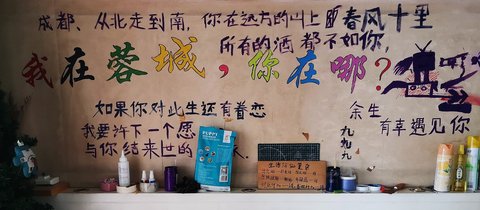 成都、从北走到南,你在远方的山上
春风十里
所有的酒都不如你,
我在蓉城,你在哪?
如果你对此生还有眷恋
我要许下一个愿
与你结来世的
人
余生
有幸遇见你
九九九